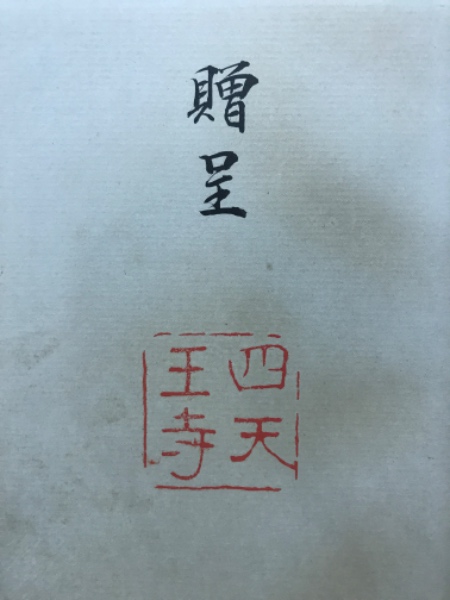 贈呈
四天
王寺